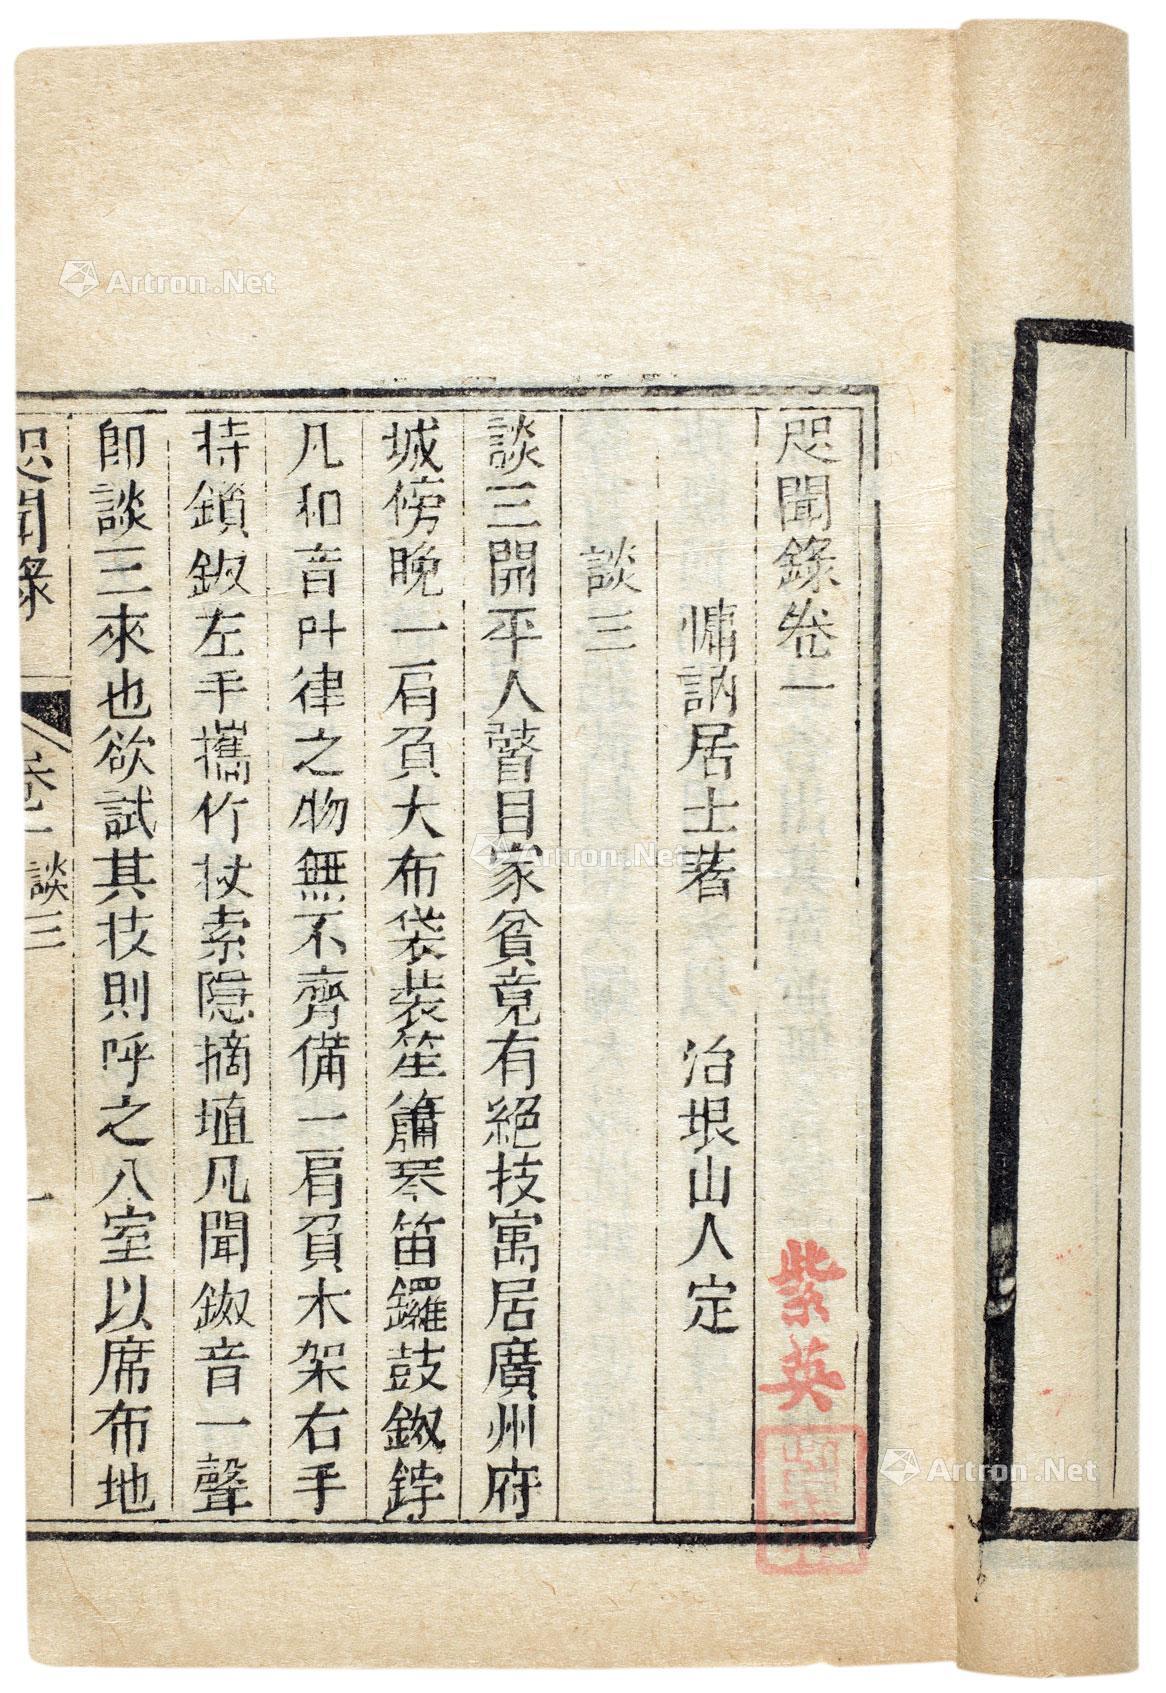 咫聞錄卷一
慵訥居士著　治垠山人定
談三
談三開平人瞽目家貧竟有絕技寓居廣州府
城傍晚一肩負大布袋裝笙簫琴笛鑼鼓鈸錞
凡和音叶律之物無不齊備一肩負木架右手
持鎖鈸左手攜竹杖索隱摘埴凡聞鈸音一聲
即談三來也欲試其技則呼之入室以席布地
咫聞錄 卷一 談三 一
紫英
Artron.Net
Artron.Net
Artron.Net